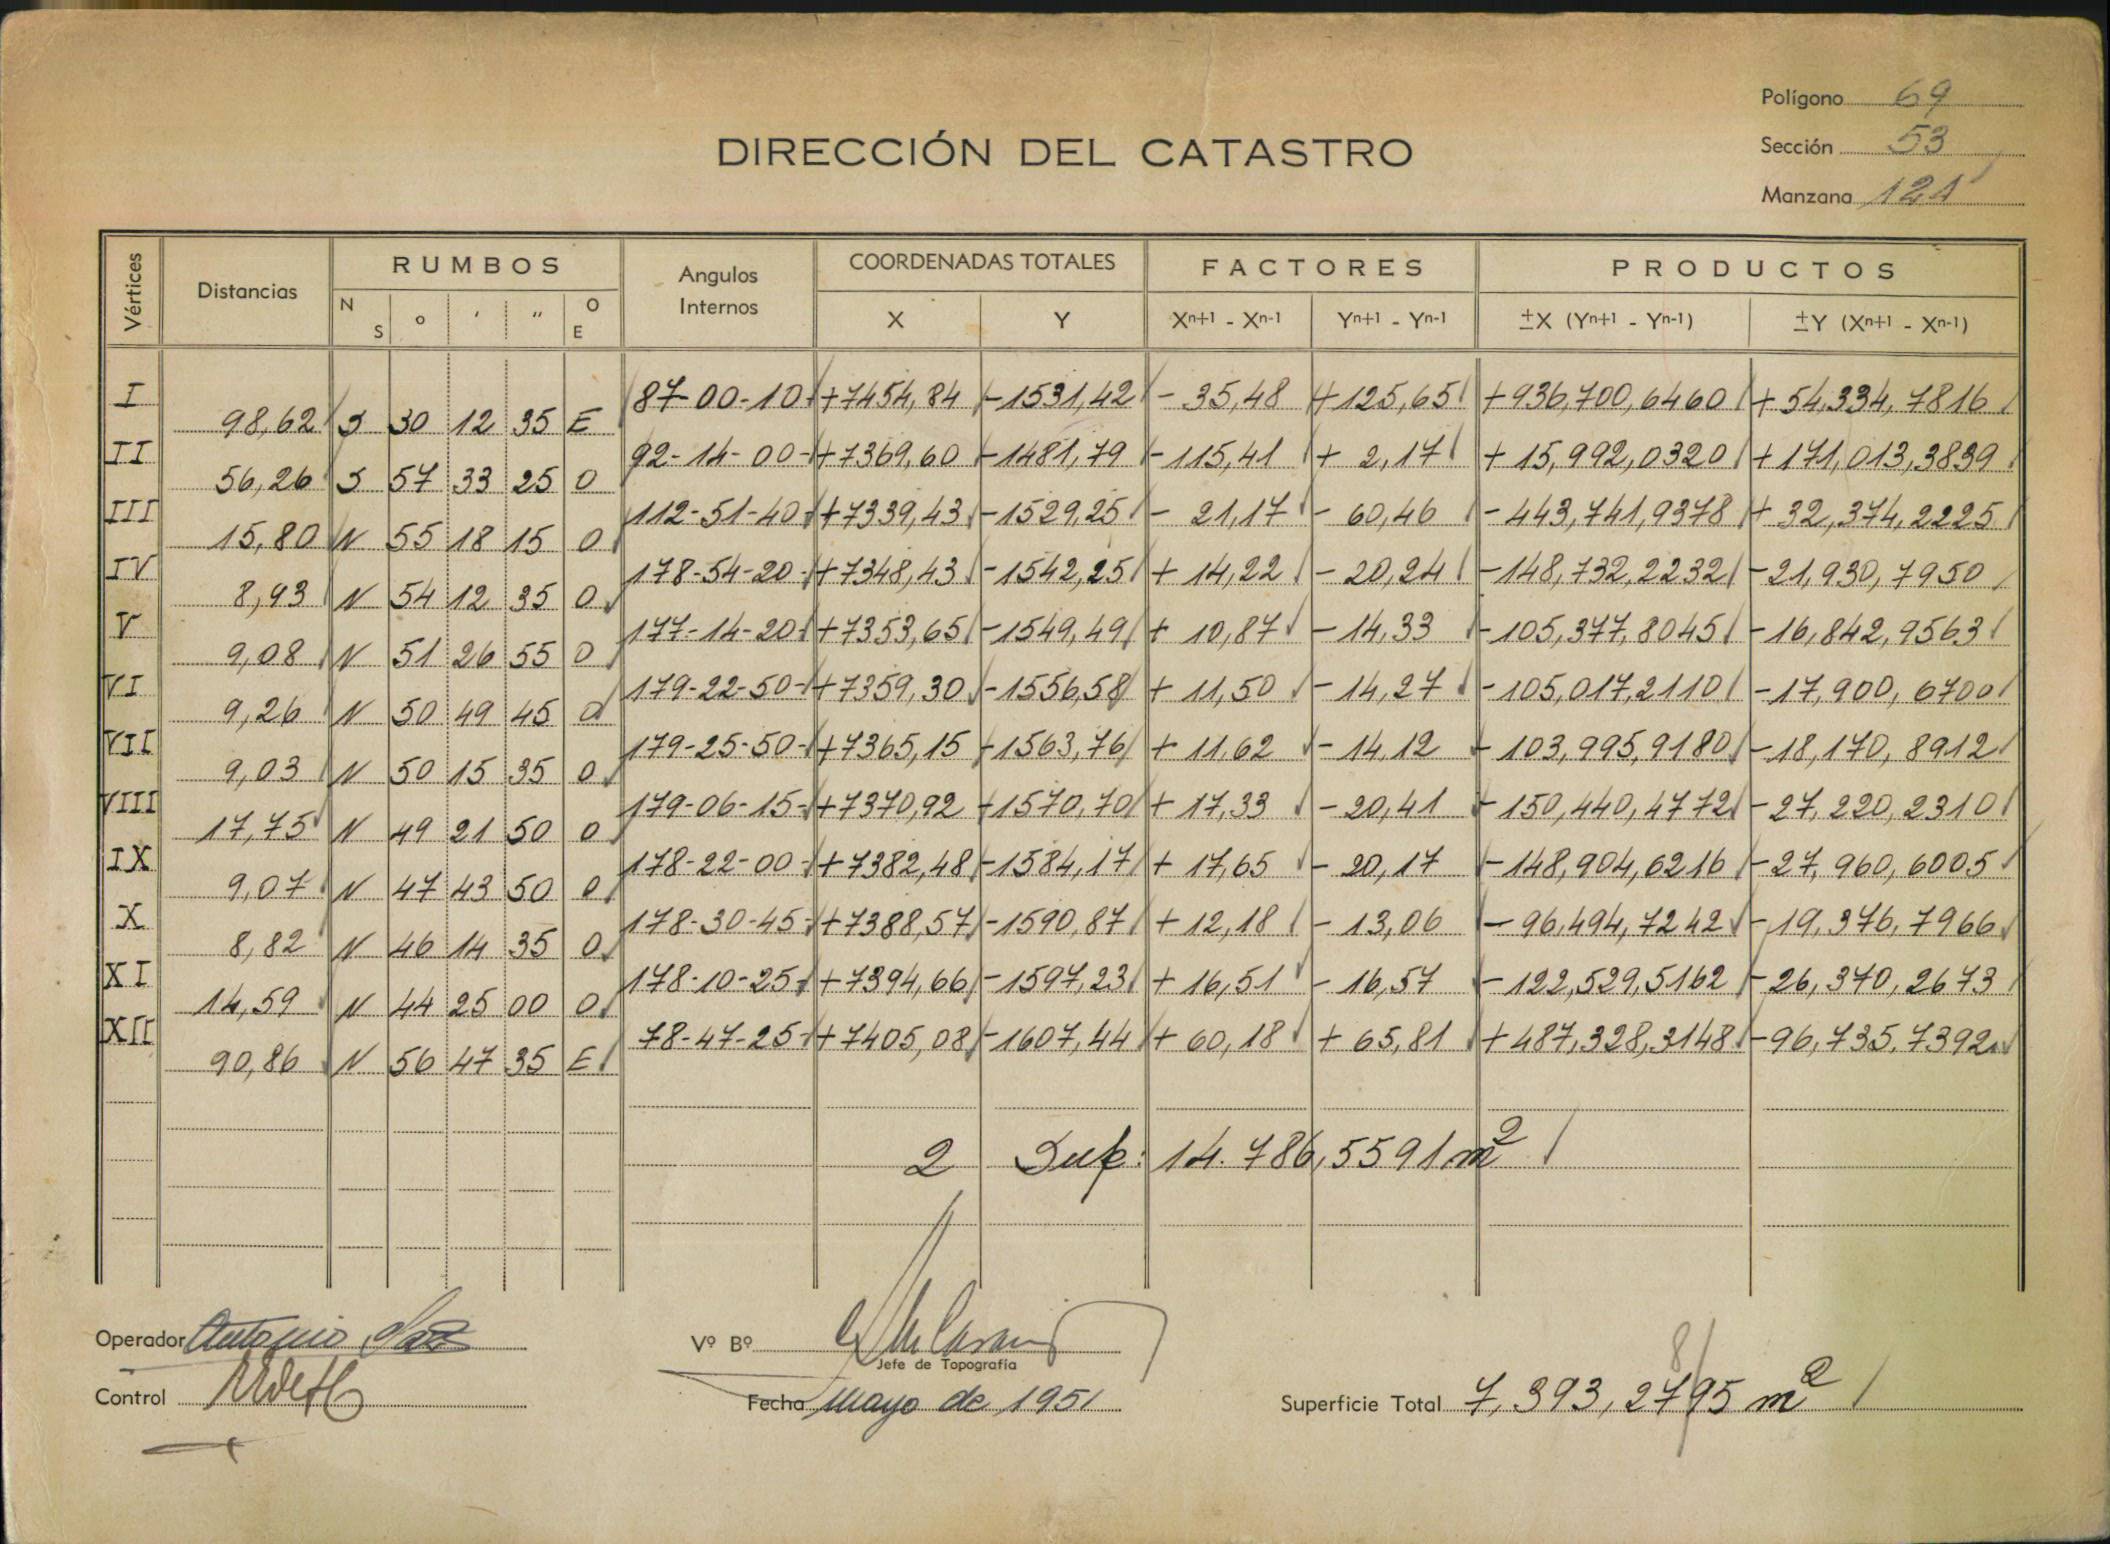 Polígono 69
DIRECCIÓN DEL CATASTRO
Sección 53
Manzana 121
Vértices Distancias RUMBOS Angulos Internos COORDENADAS TOTALES FACTORES PRODUCTOS
N S o ' " O E X Y Xn+1 - Xn-1 Yn+1 - Yn-1 ±X (Yn+1 - Yn-1) ±Y (Xn+1 - Xn-1)
I 87-00-10 +7454,84 -1531,42 - 35,48 +125,65 +936,700,6460 + 54,334,7816
98,62 S 30 12 35 E
II 92-14-00 +7369,60 -1481,79 -115,41 + 2,17 + 15,992,0320 + 171,013,3839
56,26 S 57 33 25 O
III 112-51-40 +7339,43 -1529,25 - 21,17 - 60,46 - 443,741,9378 + 32,374,2225
15,80 N 55 18 15 O
IV 178-54-20 +7348,43 -1542,25 + 14,22 - 20,24 -148,732,2232 -21,930,7950
8,93 N 54 12 35 O
V 177-14-20 +7353,65 -1549,49 + 10,87 - 14,33 -105,377,8045 -16,842,9563
9,08 N 51 26 55 O
VI 179-22-50 +7359,30 -1556,58 + 11,50 - 14,27 -105,017,2110 -17,900,6700
9,26 N 50 49 45 O
VII 179-25-50 +7365,15 -1563,76 + 11,62 - 14,12 - 103,995,9180 -18,170,8912
9,03 N 50 15 35 O
VIII 179-06-15 +7370,92 -1570,70 + 17,33 - 20,41 - 150,440,4772 -27,220,2310
17,75 N 49 21 50 O
IX 178-22-00 +7382,48 -1584,17 + 17,65 - 20,17 -148,904,6216 -27,960,6005
9,07 N 47 43 50 O
X 178-30-45 +7388,57 -1590,87 + 12,18 - 13,06 - 96,494,7242 -19,376,7966
8,82 N 46 14 35 O
XI 178-10-25 +7394,66 -1597,23 + 16,51 - 16,57 -122,529,5162 -26,370,2673
14,59 N 44 25 00 O
XII 78-47-25 +7405,08 -1607,44 + 60,18 + 65,81 +487,328,3148 -96,735,7392
90,86 N 56 47 35 E
2 Sup: 14.786,5591 m2
Operador Antonio
Vº Bº
Jefe de Topografía
8
Control
Fecha mayo de 1951
Superficie Total 7,393,2795 m2